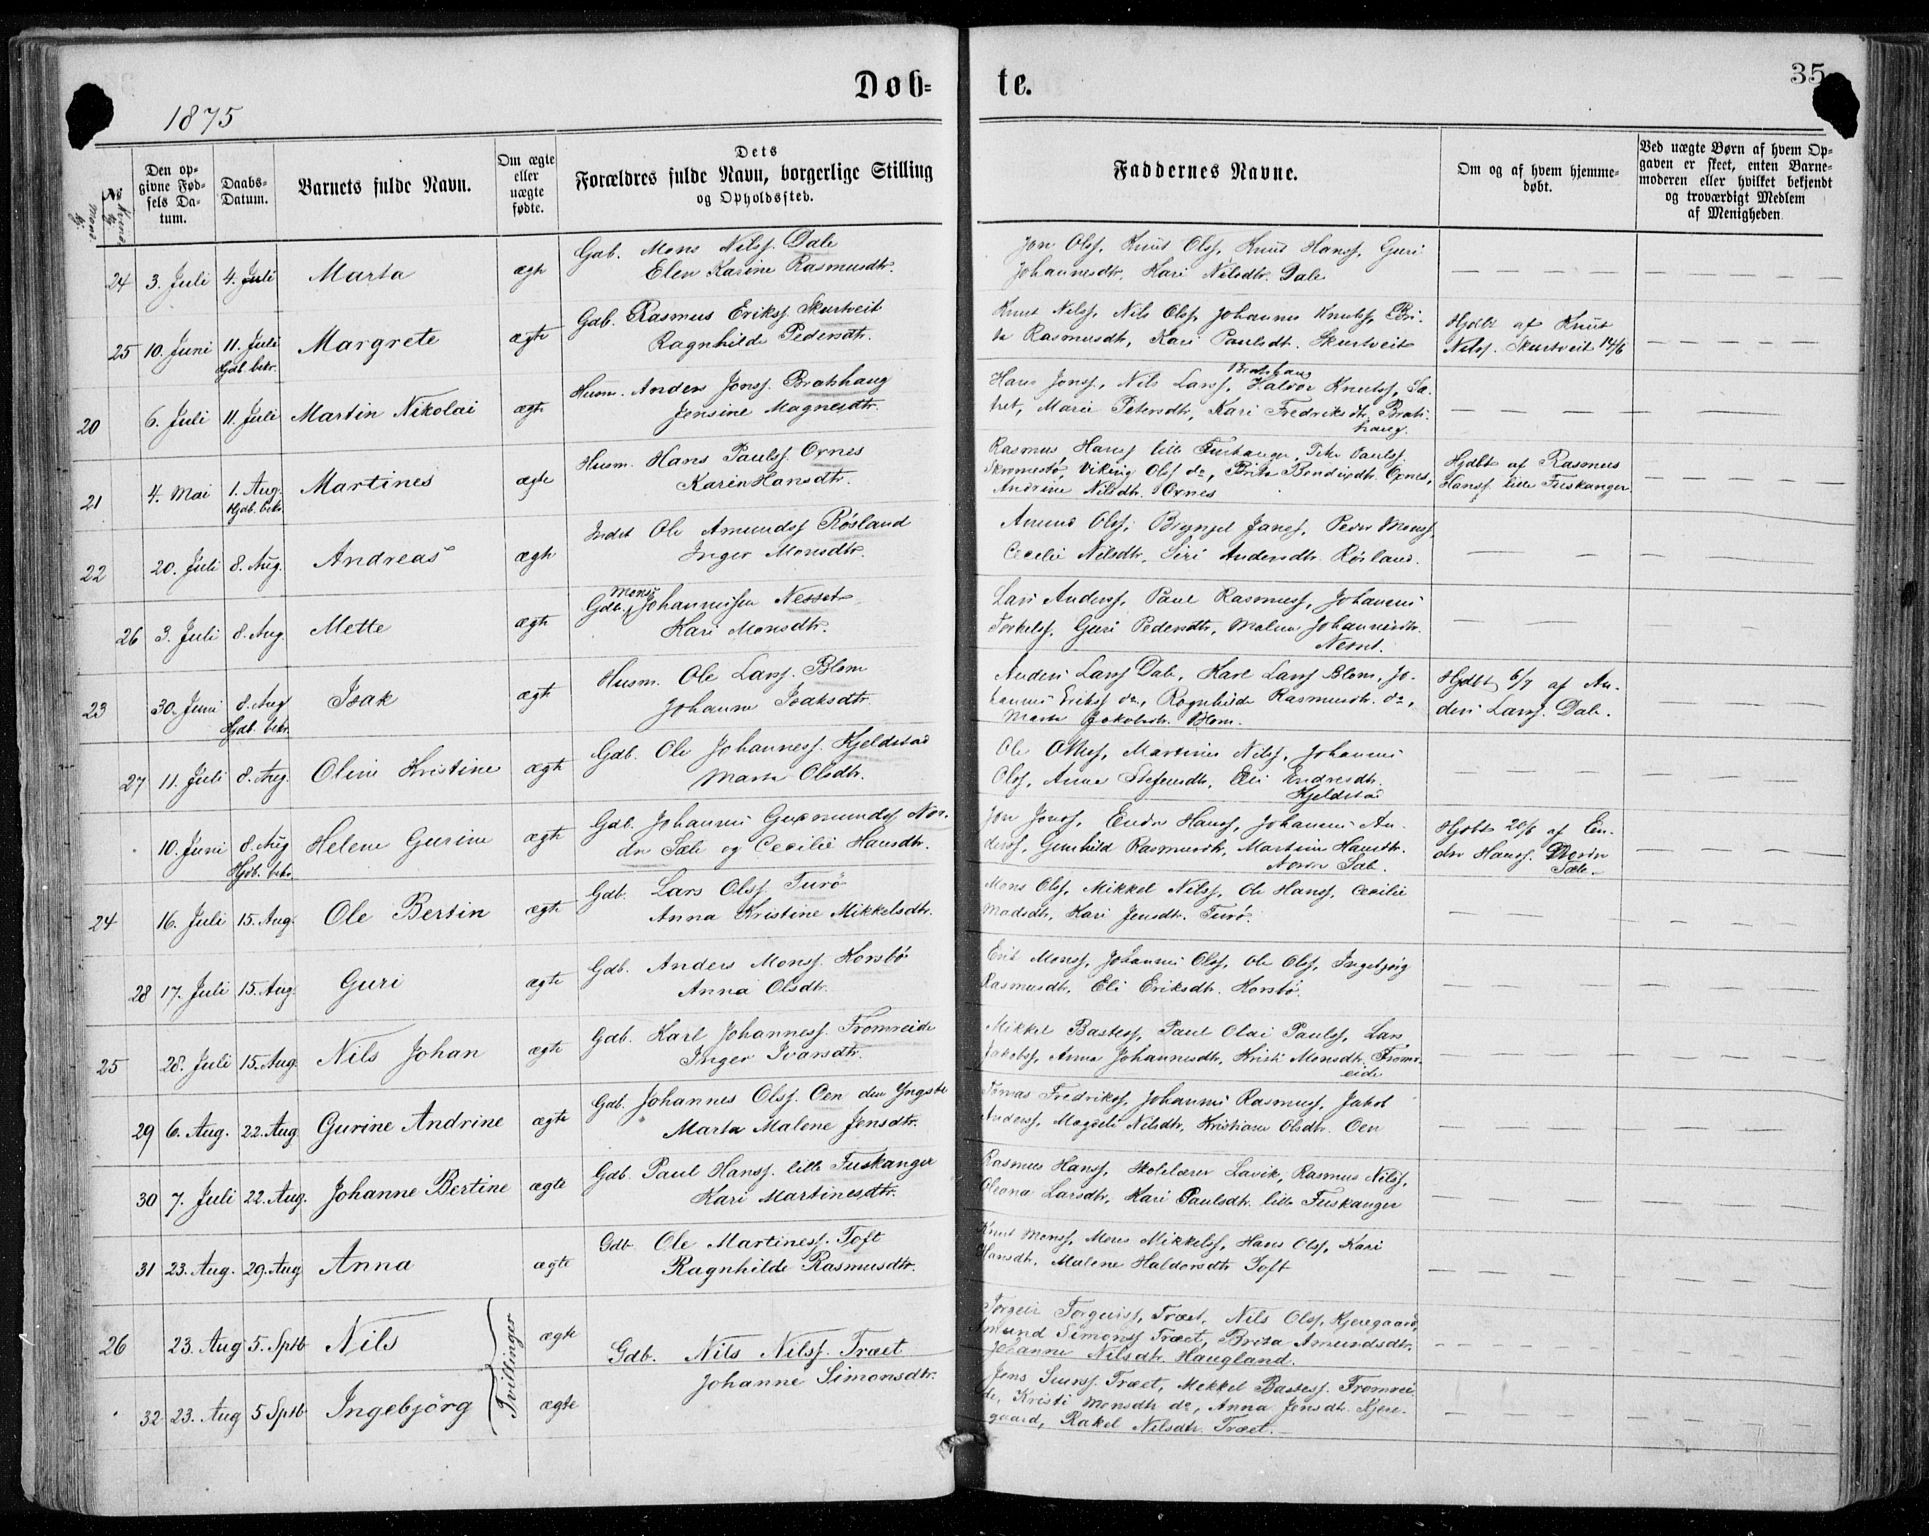 Døb= te.
35
1875
No
Mend kj.
Kvind kj.
Den op-
givne Fød-
sels Da-
tum.
Daabs-
Datum.
Barnets fulde Navn.
Om ægte
eller
uægte
fødte.
Dets
Forældres fulde Navn, borgerlige Stilling
og Opholdssted.
Faddernes Navne.
Om og af hvem hjemme-
døbt.
Ved uægte Børn af hvem Op-
gaven er skeet, enten Barne-
moderen eller hvilket bekjendt
og troværdigt Medlem
af Menigheden
24 3. Juli 4. Juli Marta ægte Gdb. Mons Nilss. Dale
Elen Karine Rasmusdtr.
Jon Olss, Knut Olss, Knut Hanss, Guri
Johannesdtr, Kari Nilsdtr. Dale
25 10. Juni 11. Juli Margrete ægte Gdb. Rasmus Erikss Skurtveit
Hjdb. bekr. Ragnhilde Pedersdtr.
Knut Nilss, Nils Olss, Johannes Knutss, Bri-
ta Rasmusdt, Kari Paulsdt. Skurtveit
Hjdbt af Knut
Nilss. Skurtveit 14/6
20 6. Juli 11. Juli Martin Nikolai ægte Husm. Anders Jonss. Bratshaug
Jensine Magnesdtr.
Bratshaug
Hans Jonss, Nils Larss, Haldor Knutss, Sæ-
tret, Marie Petersdtr, Kari Fredriksdtr. Brats-
haug.
21 4. Mai 1. Aug. Martines ægte Husm. Hans Paulss. Ornes
Hjdb. bekr. Karen Hansdtr.
Rasmus Hanss lille Fuskanger, Peter Paulss.
Viking Olss do, Brita Bendixdtr. Ornes,
Andrine Nilsdtr. Ornes
Hjdbt af Rasmus
Hanss. lille Fuskanger
22 20. Juli 8. Aug. Andreas ægte Inds Ole Amundss Røsland
Inger Monsdtr.
Amund Olss, Brynjel Janss, Peder Monss,
Cecilie Nilsdtr, Siri Andersdtr. Røsland.
26 3. Juli 8. Aug. Mette ægte Gdb. Mons Johannessen Nesset
Kari Monsdtr.
Lars Anderss, Paul Rasmuss, Johannes
Torkelss, Guri Pedersdtr, Malene Johannesdtr.
Nesset.
23 30. Juni 8. Aug Isak ægte Husm. Ole Larss. Blom
Hjdb. bekr. Johanne Isaksdtr.
Anders Larss Dale, Karl Larss Blom, Jo-
hannes Erikss do, Ragnhilde Rasmusdtr. do,
Marta Jakobsdtr. Blom.
Hjdbt 6/7 af An-
ders Larss. Dale.
27 11. Juli 8. Aug. Oline Kristine ægte Gdb. Ole Johanness. Kjeldstad
Marta Olsdtr.
Ole Olss, Martines Nilss, Johannes
Olss, Anna Stefensdtr, Eli Endresdtr.
Kjeldstad
10. Juni 8. Aug Helene Gurine ægte Gdb. Johannes Gudmundss Nor-
Hjdb. bekr. dre Sæle og Cecilie Hansdtr.
Jon Jonss, Endre Hanss, Johannes An-
derss, Gunhild Rasmusdtr, Martine Hansdtr.
Nordre Sæle.
Hjdbt 20/6 af En-
dre Hanss. Nordre
Sæle.
24 16. Juli 15. Aug. Ole Bertin ægte Gdb. Lars Olss Turø
Anna Kristine Mikkelsdtr.
Mons Olss, Mikkel Nilss, Ole Hanss, Cecilie
Madsdtr, Kari Jensdtr. Turø.
28 17. Juli 15. Aug. Guri ægte Gdb. Anders Monss. Korsbø
Anna Olsdtr.
Erik Monss, Johannes Olss, Ole Olss, Ingebjørg
Rasmusdtr, Eli Eriksdtr. Korsbø.
25 28. Juli 15. Aug. Nils Johan ægte Gdb. Karl Johanness. Fromreide
Inger Ivarsdtr.
Mikkel Bastess, Paul Olai Paulss, Lars
Jakobss, Anna Johannesdtr, Kristi Monsdtr. Fromr-
eide
29 6. Aug. 22. Aug Gurine Andrine ægte Gdb. Johannes Olss. Oen den Yngste
Marta Malene Jensdtr.
Tomas Fredrikss, Johannes Rasmuss, Jakob
Anderss, Magdeli Nilsdtr, Kristiane Olsdtr. Oen
30 7. Juli 22. Aug. Johanne Bertine ægte Gdb. Paul Hanss. lille Fuskanger
Kari Martinesdtr.
Rasmus Hanss, Skolelærer Lavik, Rasmus Nilss,
Oleana Larsdtr, Kari Paulsdtr. lille Fuskanger
31 23. Aug. 29. Aug Anna ægte Gdb Ole Martiness. Toft
Ragnhilde Rasmusdtr.
Knut Monss, Mons Mikkelss, Hans Olss, Kari
Hansdtr, Malene Haldorsdtr Toft
26 23. Aug 5. Sptb Nils ægte
Tvillinger
Gdb. Nils Nilss. Træet
Johanne Simonsdtr.
Torgeir Torgeirss, Træet, Nils Olss, Kjæregaard,
Amund Simonss Træet, Brita Amundsdtr,
Johanne Nilsdtr. Haugland.
32 23. Aug 5 Sptb Ingebjörg ægte
Jens Siurss. Træet, Mikkel Bastess. Fromrei-
de, Kristi Monsdtr do, Anna Jensdtr. Kjære-
gaard, Rakel Nilsdtr. Træet.